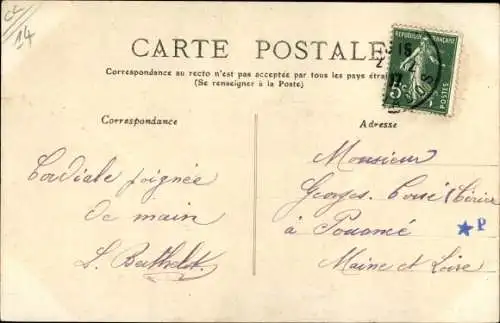 CC
14
CARTE POSTALE
Correspondance au recto n'est pas acceptée par tous les pays étra
(Se renseigner à la Poste)
REPUBLIQUE FRANÇAISE
15
5c
POSTES
Correspondance
Adresse
Cordiale poignée
de main
L. Berthelot
Monsieur
Georges
à Pouancé
Maine et Loire
P